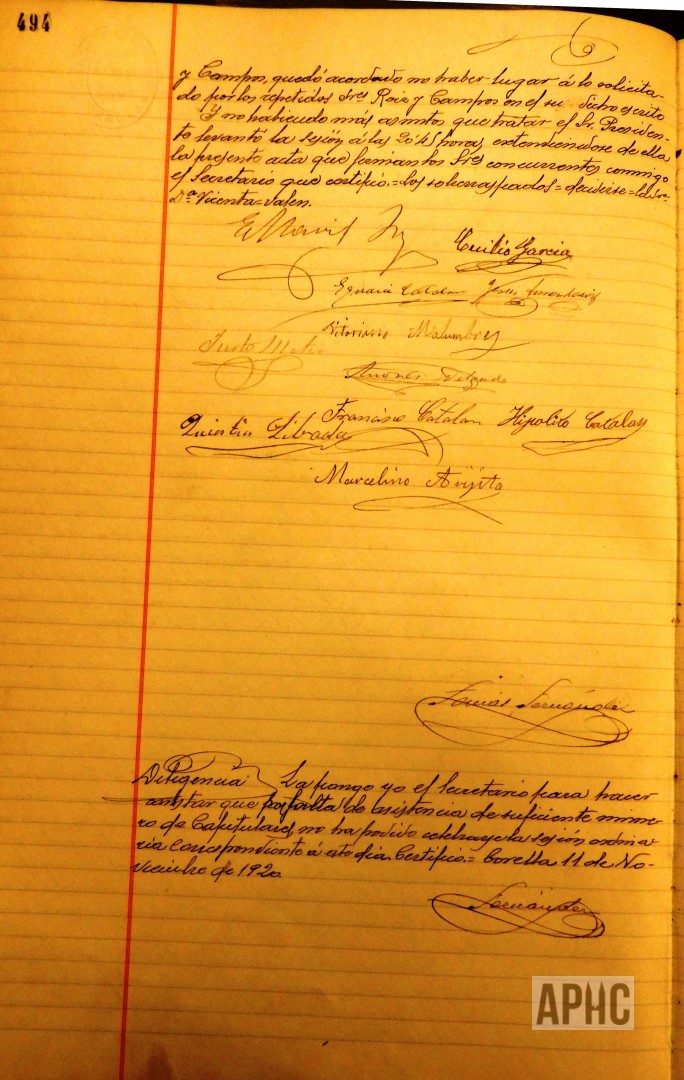 494
y Campos, quedó acordado no haber lugar á lo solicita-
do por los repetidos Sres Roiz y Campos en el su dicho escrito
Y no habiendo más asuntos que tratar el Sr. Presiden-
te levantó la sesión á las 20'45 horas, extendiéndose de ella
la presente acta que firman los Sres concurrentes conmigo
el Secretario que certifico.=Los sobrerraspados=decidirse=
Dª Vicenta=Valen.
Cecilio Garcia
Catalan Jesus
Vitoriano Malumbres
Justo
Andrés Delgado
Francisco Catalan Hipolito Catalan
Quintin
Marcelino Arigita
Fernández
Diligencia La pongo yo el Secretario para hacer
constar que por falta de asistencia de suficiente núme-
ro de Capitulares, no ha podido celebrarse la sesión ordina-
ria correspondiente á este dia. Certifico.= Corella 11 de No-
viembre de 1920.
Fernández
APHC